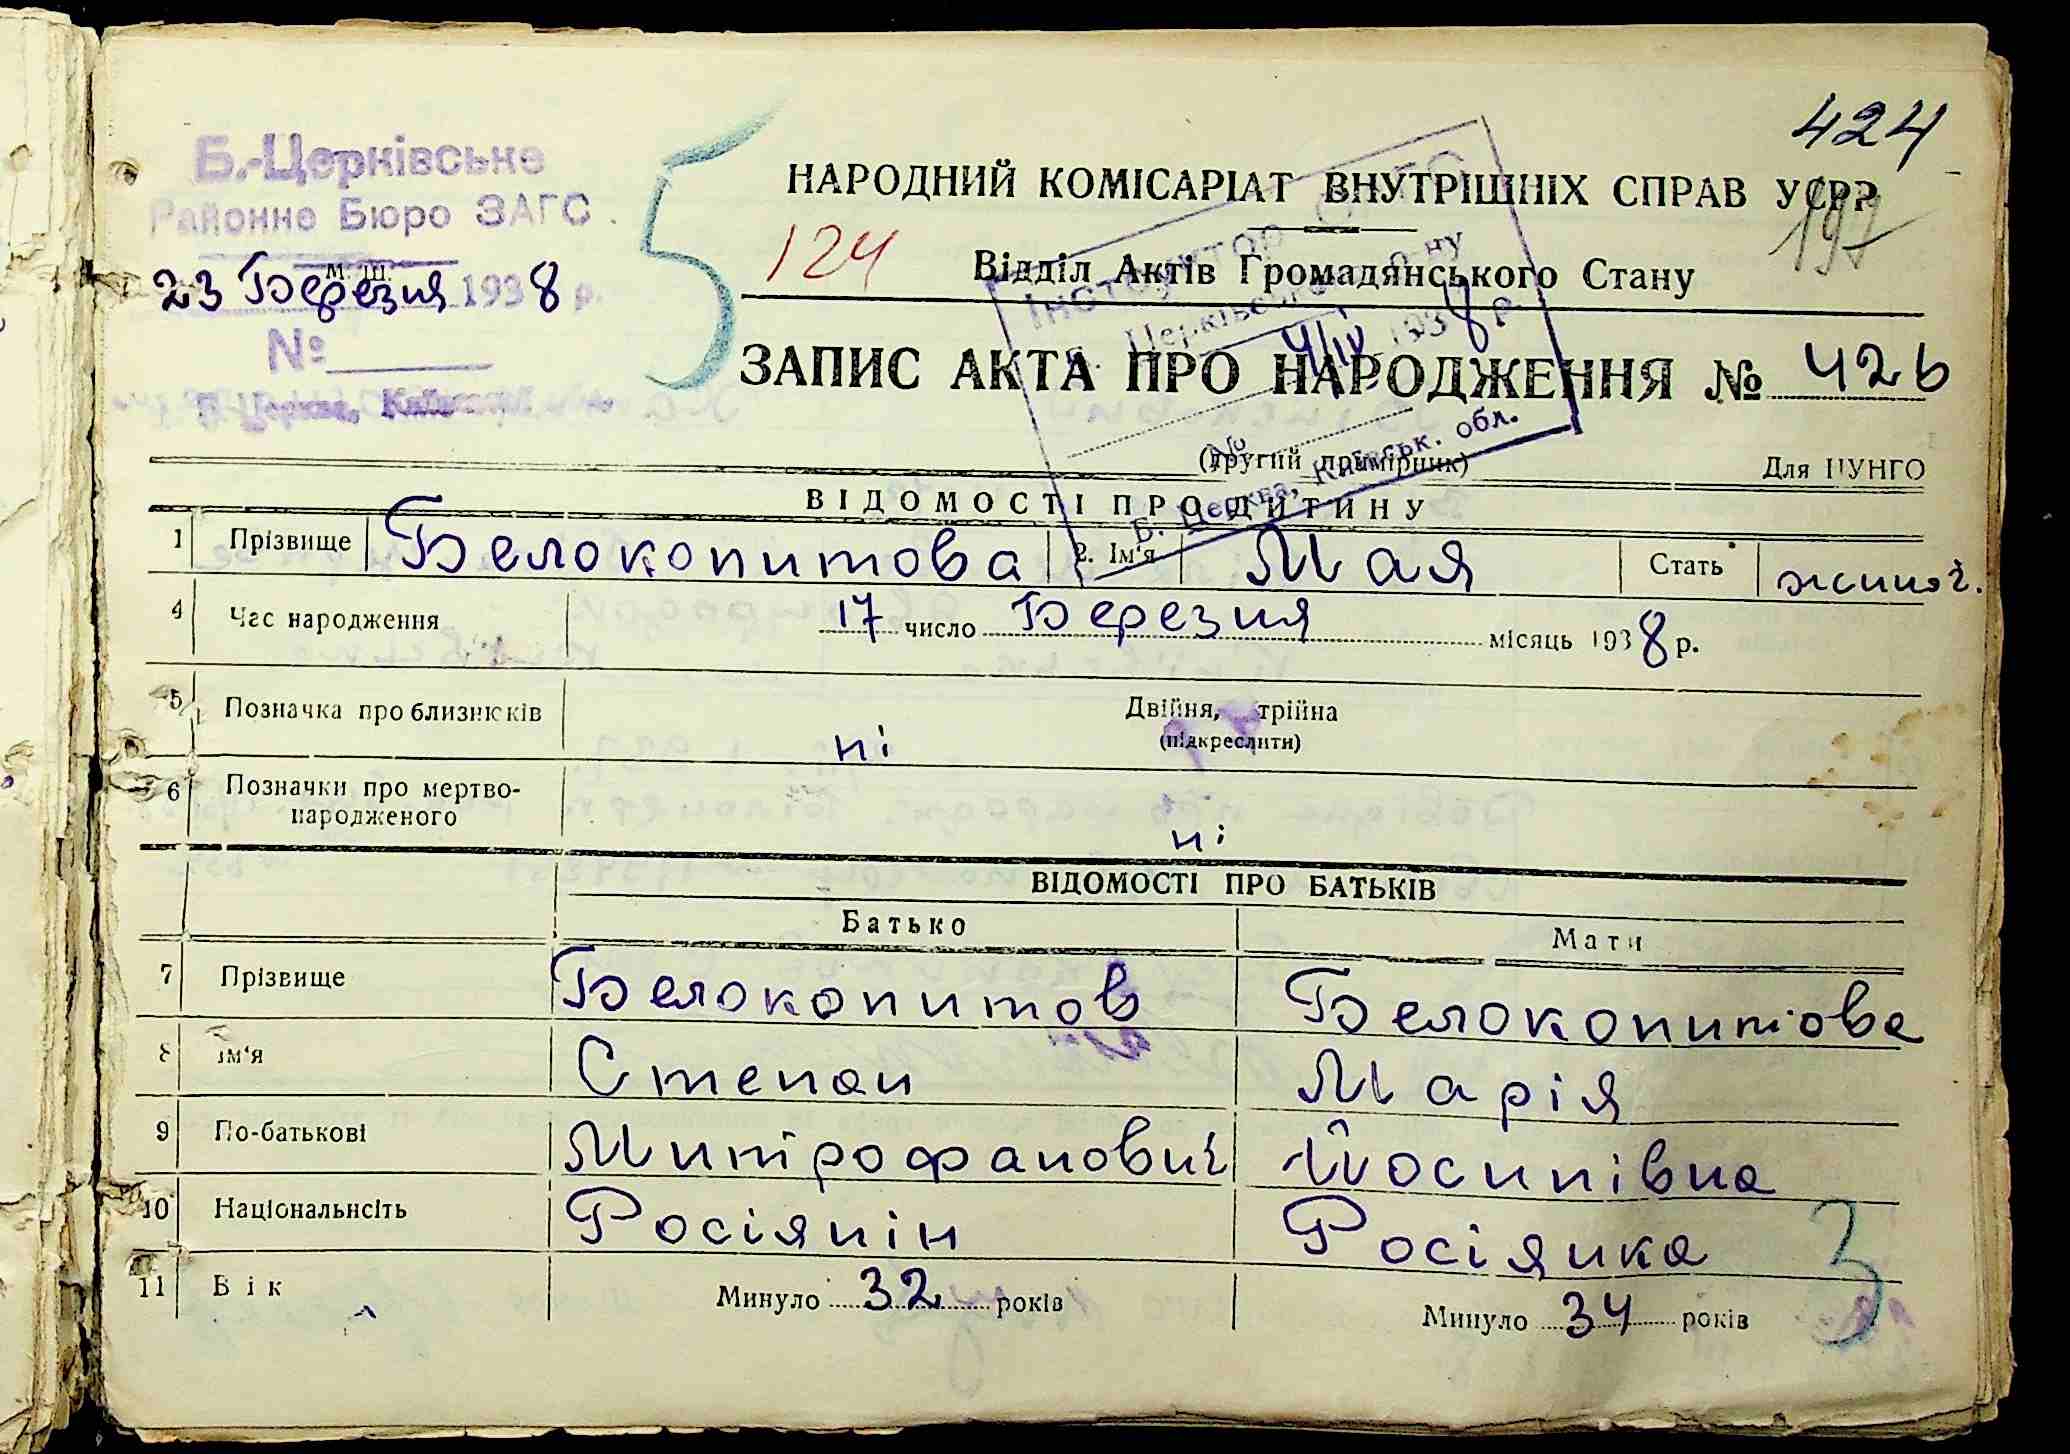 424
Б.-Церківське
Районне Бюро ЗАГС
5
НАРОДНИЙ КОМІСАРІАТ ВНУТРІШНІХ СПРАВ УСРР
124
197
Відділ Актів Громадянського Стану
м. ш.
23 Березня 1938 р.
№
Інспектор
р-ну
Церківського
4/IV 1938 р.
ЗАПИС АКТА ПРО НАРОДЖЕННЯ № 426
Б. Церква, Київськ. обл.
(другий примірник)
Для ЦУНГО
ВІДОМОСТІ ПРО ДИТИНУ
1 Прізвище Белокопитова 2. Ім'я Мая Стать жіноч.
4 Час народження 17 число Березня місяць 1938 р.
5 Позначка про близнюків ні Двійня, трійна
(підкреслити)
6 Позначки про мертво-
народженого ні
ВІДОМОСТІ ПРО БАТЬКІВ
Батько Мати
7 Прізвище Белокопитов Белокопитова
8 Ім'я Степан Марія
9 По-батькові Митрофанович Йосипівна
10 Національність Росіянін Росіянка
3
11 Вік Минуло 32 років Минуло 34 років